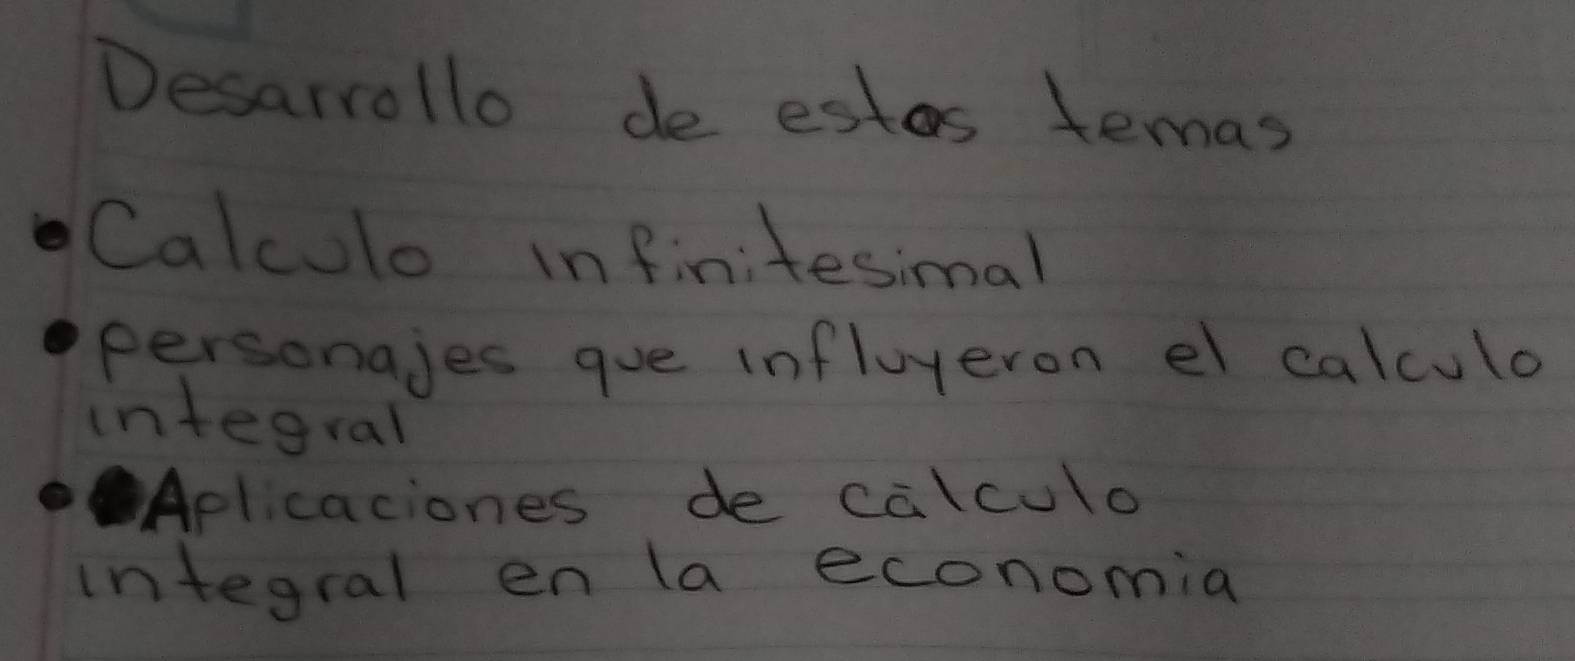 Desarrollo de estos temas
• Calculo infinitesimal
• personajes que influyeron el calculo
integral
• Aplicaciones de cálculo
integral en la economia